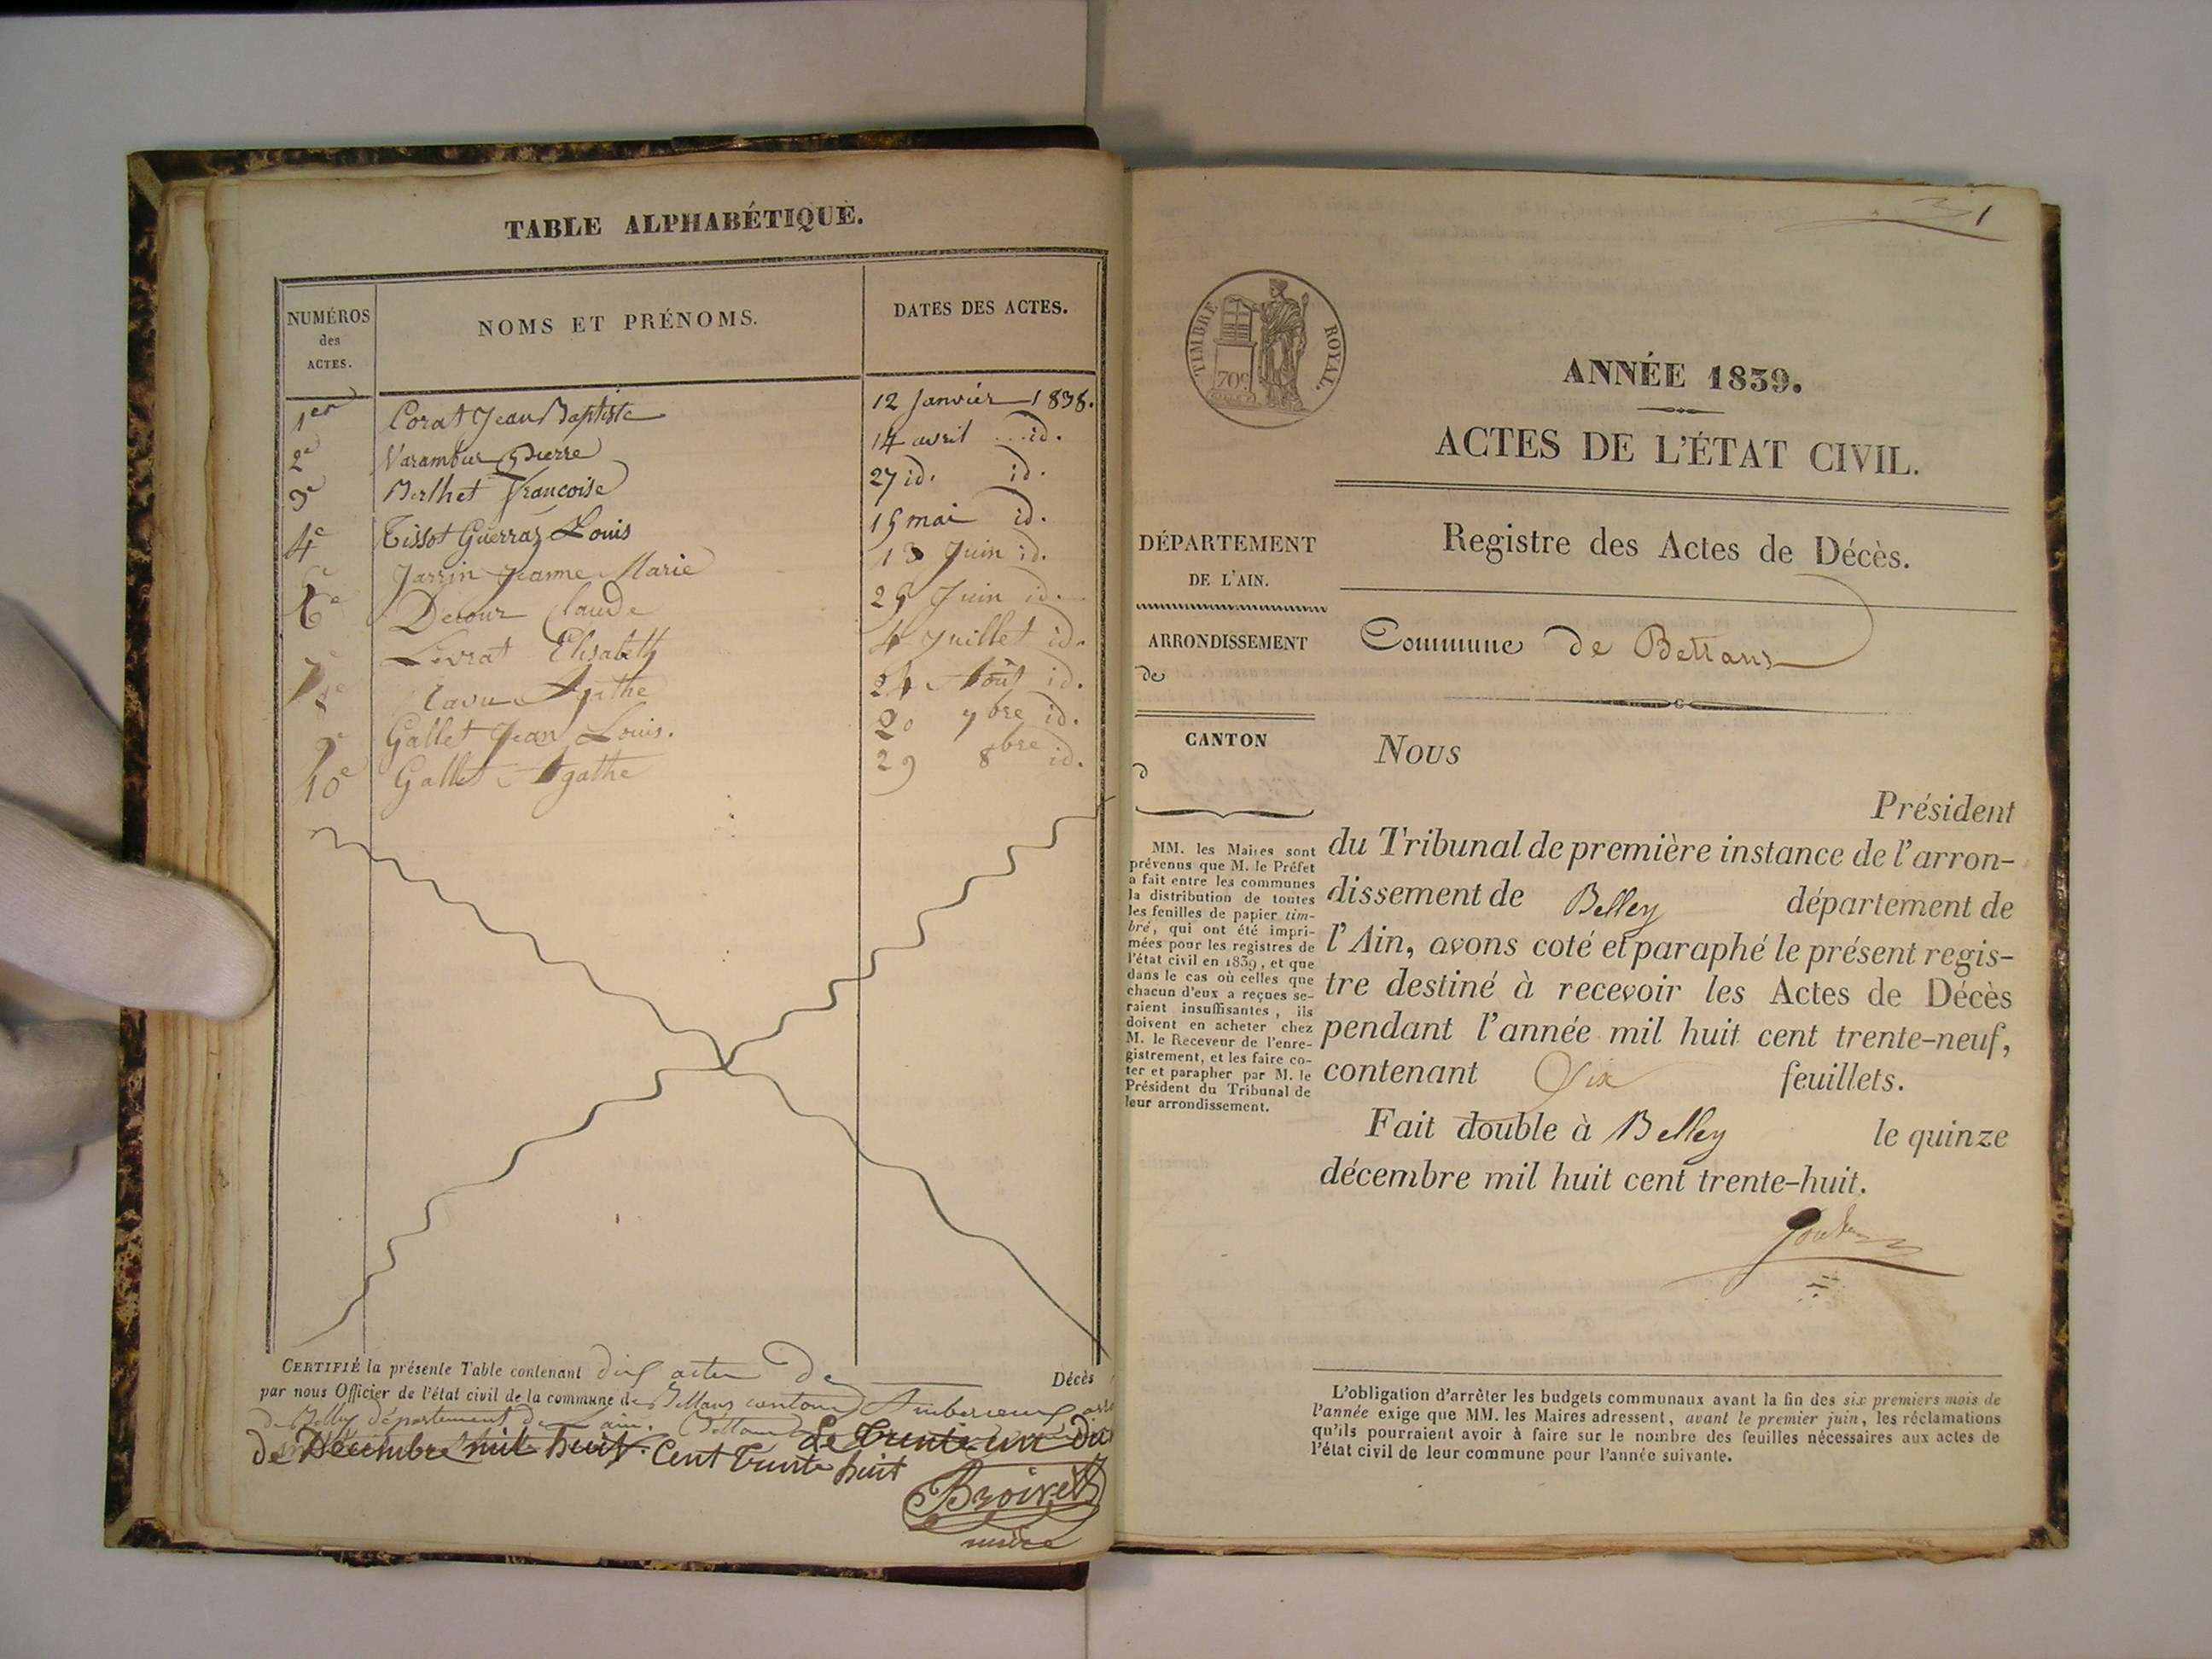 TABLE ALPHABÉTIQUE.
NUMÉROS des ACTES.
NOMS ET PRÉNOMS.
DATES DES ACTES.
1er Corat Jean Baptiste 12 Janvier 1838.
2e Varambur Pierre 14 avril id.
3e Berthet Francoise 27 id. id.
4e Tissot Guerraz Louis 15 mai id.
Jarrin Jeanne Marie 13 Juin id.
6e Decour Claude 25 Juin id.
7e Livrat Elisabeth 4 Juillet id.
8e Agathe 24 Août id.
9e Gallet Jean Louis. 20 7bre id.
10e Gallet Agathe 29 8bre id.
CERTIFIÉ la présente Table contenant dix actes de Décès
par nous Officier de l'état civil de la commune de Bettans canton
de Belley département de l'ain.
Le Trente un du
de Décembre mil huit Cent Trente huit
Broiret
maire
1
TIMBRE ROYAL.
70c
ANNÉE 1839.
ACTES DE L'ÉTAT CIVIL.
DÉPARTEMENT
DE L'AIN.
ARRONDISSEMENT
de
CANTON
d
MM. les Maires sont
prévenus que M. le Préfet
a fait entre les communes
la distribution de toutes
les feuilles de papier tim-
bré, qui ont été impri-
mées pour les registres de
l'état civil en 1839, et que
dans le cas où celles que
chacun d'eux a reçues se-
raient insuffisantes, ils
doivent en acheter chez
M. le Receveur de l'enre-
gistrement, et les faire co-
ter et parapher par M. le
Président du Tribunal de
leur arrondissement.
Registre des Actes de Décès.
Commune de Bettans
Nous
Président
du Tribunal de première instance de l'arron-
dissement de Belley département de
l'Ain, avons coté et paraphé le présent regis-
tre destiné à recevoir les Actes de Décès
pendant l'année mil huit cent trente-neuf,
contenant Six feuillets.
Fait double à Belley le quinze
décembre mil huit cent trente-huit.
L'obligation d'arrêter les budgets communaux avant la fin des six premiers mois de
l'année exige que MM. les Maires adressent, avant le premier juin, les réclamations
qu'ils pourraient avoir à faire sur le nombre des feuilles nécessaires aux actes de
l'état civil de leur commune pour l'année suivante.